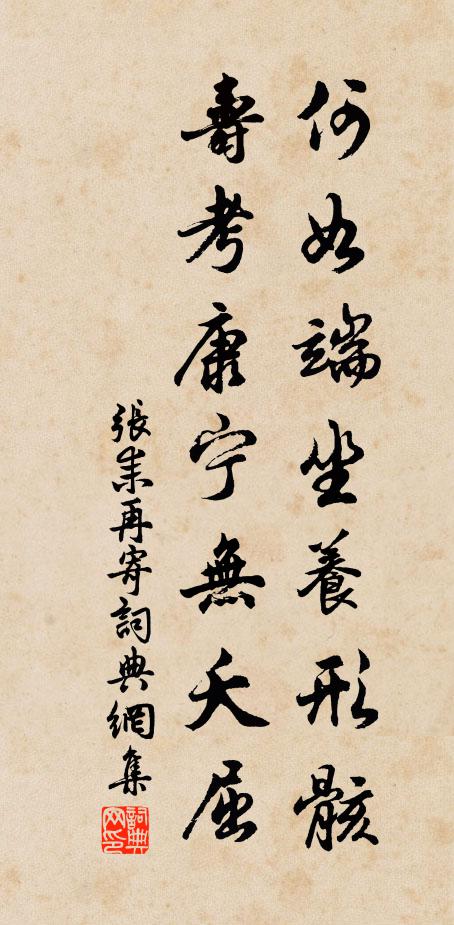 何如端坐養形骸
壽考康宁無夭屈
張耒再寄詞典網集
詞典网印